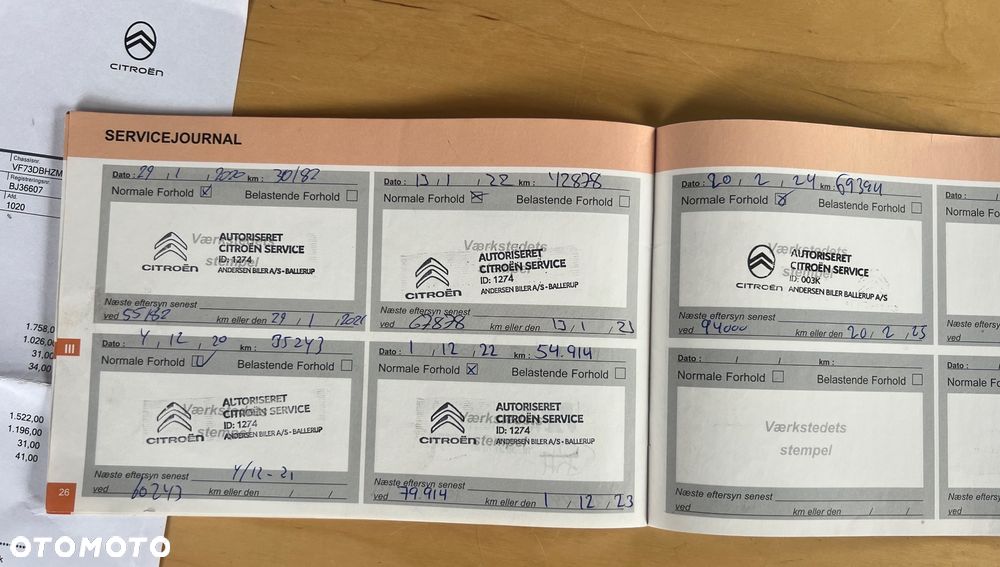 CITROËN
Chassisnr.
VF73DBHZM
Registreringsnr.
BJ36607
Afd.
1020
%
1.758,0
1.026,0
31,00
34,00
1.522,00
1.196,00
31,00
41,00
SERVICEJOURNAL
Dato : 29 , 1 , 2020 km : 30182
Normale Forhold Belastende Forhold
Værkstedets stempel
AUTORISERET
CITROËN SERVICE
ID: 1274
ANDERSEN BILER A/S - BALLERUP
CITROËN
Næste eftersyn senest
ved 55182 km eller den 29 , 1 , 2021
Dato : 4 , 12 , 20 km : 35243
Normale Forhold Belastende Forhold
Værkstedets stempel
AUTORISERET
CITROËN SERVICE
ID: 1274
ANDERSEN BILER A/S - BALLERUP
CITROËN
Næste eftersyn senest 4/12-21
ved 60243 km eller den / /
Dato : 13 , 1 , 22 km : 42878
Normale Forhold Belastende Forhold
Værkstedets
AUTORISERET
CITROËN SERVICE
ID: 1274
ANDERSEN BILER A/S - BALLERUP
CITROËN
Næste eftersyn senest
ved 67878 km eller den 13 , 1 , 23
Dato : 1 , 12 , 22 km : 54.914
Normale Forhold Belastende Forhold
Værkstedets stempel
AUTORISERET
CITROËN SERVICE
ID: 1274
ANDERSEN BILER A/S - BALLERUP
CITROËN
Næste eftersyn senest
ved 79.914 km eller den 1 , 12 , 23
Dato : 20 , 2 , 24 km : 69394
Normale Forhold Belastende Forhold
Værkstedets stempel
AUTORISERET
CITROËN SERVICE
ID: 003K
ANDERSEN BILER BALLERUP A/S
CITROËN
Næste eftersyn senest
ved 94000 km eller den 20 , 2 , 25
Dato : / / km :
Normale Forhold Belastende Forhold
Værkstedets
stempel
Næste eftersyn senest
ved km eller den / /
Dato :
Normale Fo
Næste efte
ved
Dato :
Normale Fo
Næste efte
ved
III
26
OTOMOTO